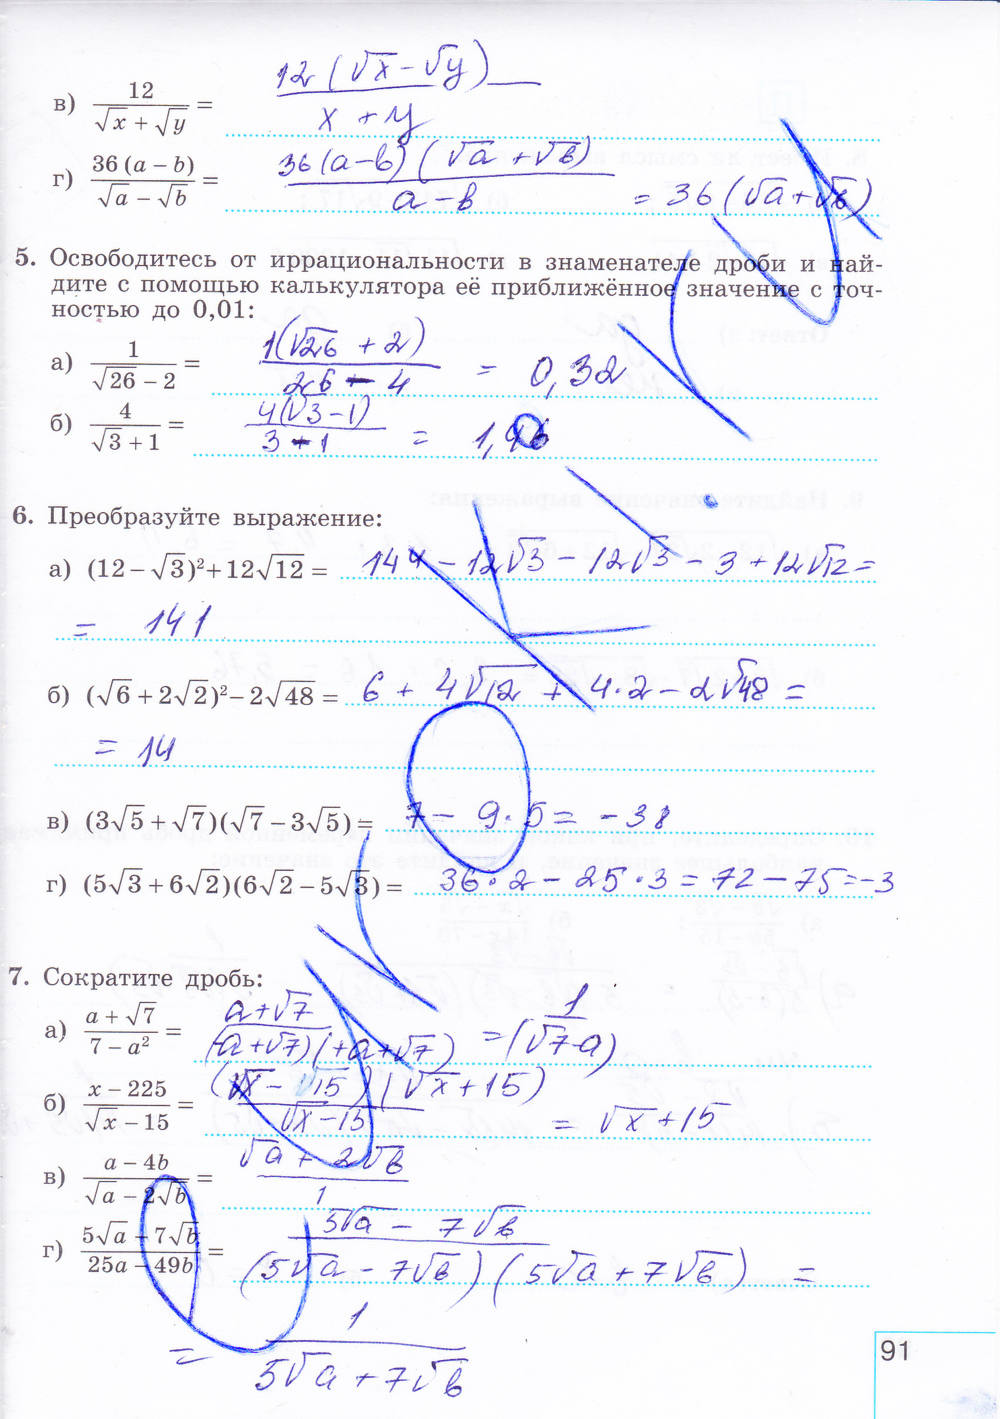 в) 12/(√x + √y) = 12(√x - √y)/(x + y)
г) 36(a − b)/(√a − √b) = 36(a-b)(√a + √b)/(a-b) = 36(√a+√b)
5. Освободитесь от иррациональности в знаменателе дроби и най-
дите с помощью калькулятора её приближённое значение с точ-
ностью до 0,01:
а) 1/(√26 − 2) = 1(√26 + 2)/(26 - 4) = 0,32
б) 4/(√3 + 1) = 4(√3-1)/(3-1) =
6. Преобразуйте выражение:
а) (12 − √3)² + 12√12 = 144 - 12√3 - 12√3 - 3 + 12√12 =
= 141
б) (√6 + 2√2)² − 2√48 = 6 + 4√12 + 4·2 - 2√48 =
= 14
в) (3√5 + √7)(√7 − 3√5) = 7 - 9·5 = -38
г) (5√3 + 6√2)(6√2 − 5√3) = 36·2 - 25·3 = 72 - 75 = -3
7. Сократите дробь:
а) (a + √7)/(7 − a²) = (a+√7)/((a+√7)(+a+√7)) = 1/(√7-a)
б) (x − 225)/(√x − 15) = (√x - √15)(√x+15)/(√x-15) = √x+15
в) (a − 4b)/(√a − 2√b) = (√a + 2√b)/1
г) (5√a − 7√b)/(25a − 49b) = (5√a - 7√b)/((5√a - 7√b)(5√a+7√b)) =
= 1/(5√a+7√b)
91